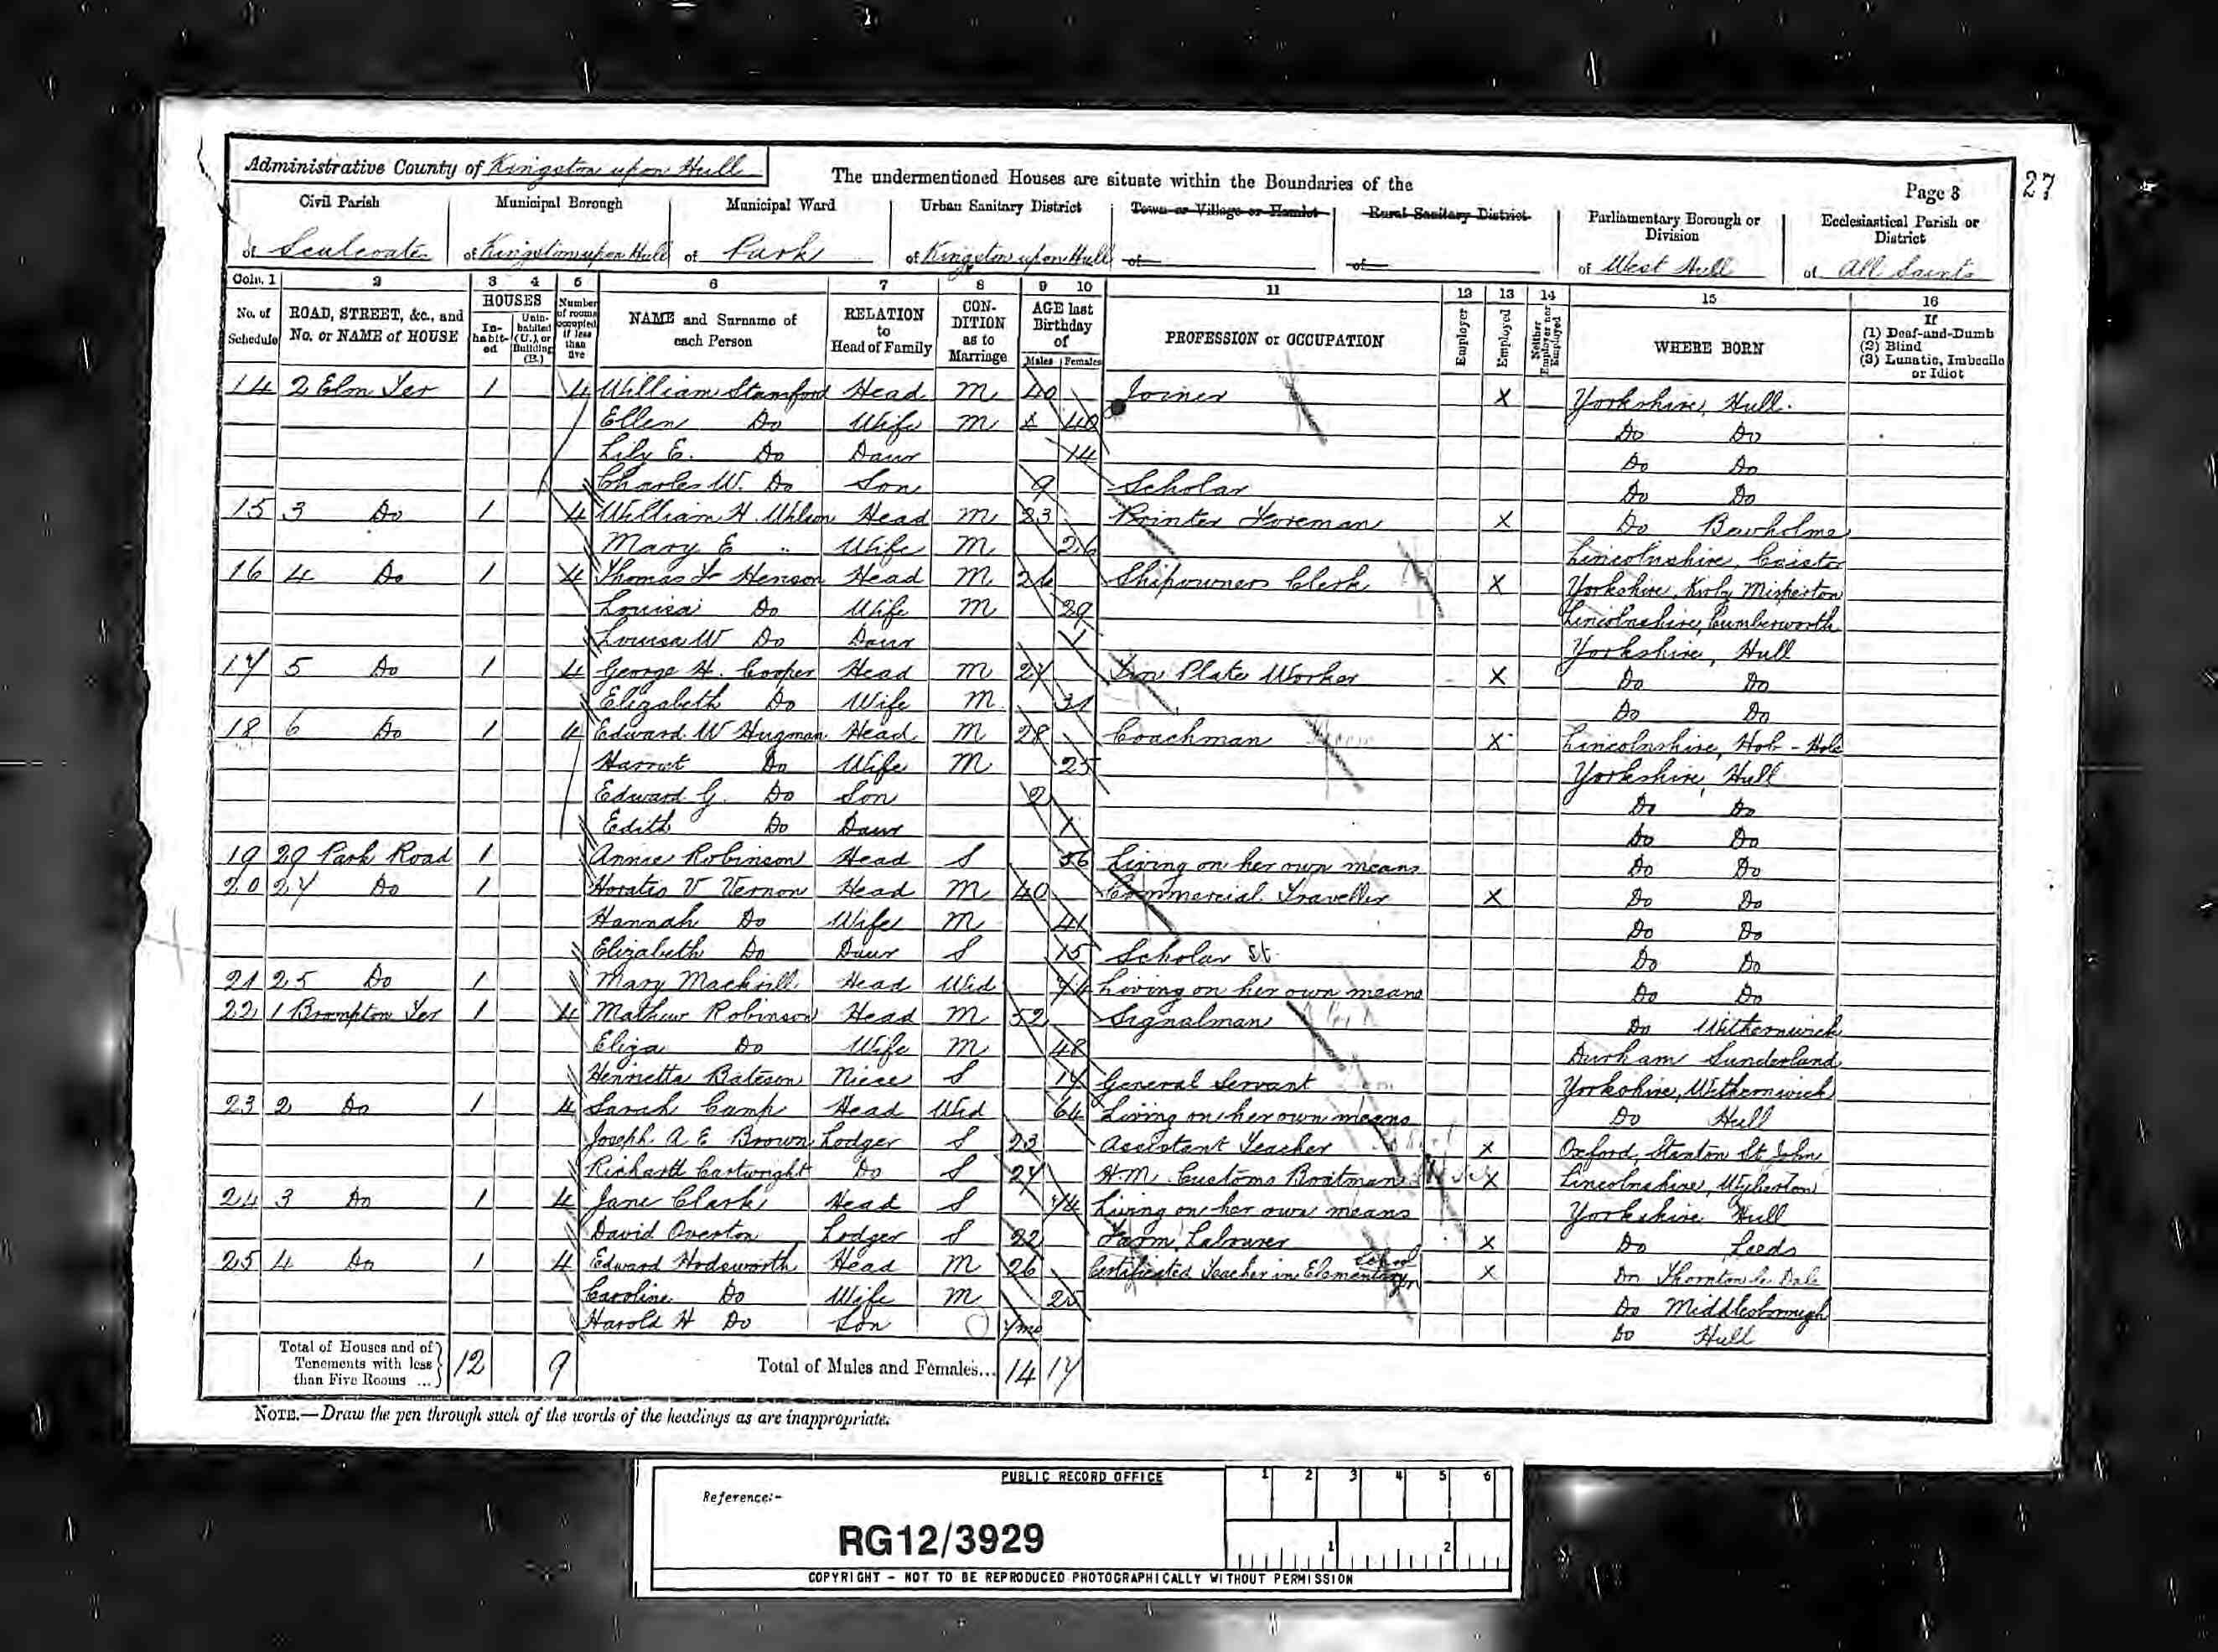 27
Administrative County of Kingston upon Hull
The undermentioned Houses are situate within the Boundaries of the
Page 3
Civil Parish
Municipal Borough
Municipal Ward
Urban Sanitary District
Town or Village or Hamlet
Rural Sanitary District
Parliamentary Borough or Division
Ecclesiastical Parish or District
of Sculcoates of Kingston upon Hull of Park of Kingston upon Hull of of of West Hull of All Saints
Coln. 1 2 3 4 5 6 7 8 9 10 11 12 13 14 15 16
No. of Schedule
ROAD, STREET, &c., and No. or NAME of HOUSE
HOUSES
In-habit-ed
Unin-habited (U.), or Building (B.)
Number of rooms occupied if less than five
NAME and Surname of each Person
RELATION to Head of Family
CON-DITION as to Marriage
AGE last Birthday of
Males Females
PROFESSION or OCCUPATION
Employer
Employed
Neither Employer nor Employed
WHERE BORN
If
(1) Deaf-and-Dumb
(2) Blind
(3) Lunatic, Imbecile or Idiot
14 2 Elm Ter 1 4 William Stamford Head M 40 Joiner X Yorkshire, Hull.
Ellen Do Wife M X 40 Do Do
Lily E. Do Daur 14 Do Do
Charles W. Do Son 9 Scholar Do Do
15 3 Do 1 4 William H. Head M 23 Printer Foreman X Do Bewholme
Mary E " Wife M 26 Lincolnshire, Caistor
16 4 Do 1 4 Thomas Henson Head M 26 Shipowners Clerk X Yorkshire, Kirby Misperton
Louisa Do Wife M 29 Lincolnshire, Cumberworth
Louisa W Do Daur 1 Yorkshire, Hull
17 5 Do 1 4 George H. Cooper Head M 27 Plate Worker X Do Do
Elizabeth Do Wife M 31 Do Do
18 6 Do 1 4 Edward W Hugman Head M 28 Coachman X Lincolnshire, Hob - Hole
Harriet Do Wife M 25 Yorkshire, Hull
Edward G. Do Son 2 Do Do
Edith Do Daur 1 Do Do
19 29 Park Road 1 Annie Robinson Head S 56 Living on her own means Do Do
20 27 Do 1 Horatio V Vernon Head M 40 Commercial Traveller X Do Do
Hannah Do Wife M 41 Do Do
Elizabeth Do Daur S 15 Scholar St. Do Do
21 25 Do 1 Mary Mackrill Head Wid 74 Living on her own means Do Do
22 1 Brompton Ter 1 4 Mathew Robinson Head M 52 Signalman Do Withernwick
Eliza Do Wife M 48 Durham Sunderland
Henrietta Bateson Niece S 17 General Servant Yorkshire, Withernwick
23 2 Do 1 4 Sarah Camp Head Wid 64 Living on her own means Do Hull
Joseph A E Brown Lodger S 23 Assistant Teacher X Oxford, Stanton St John
Richard Cartwright Do S 27 H.M. Customs Boatman X Lincolnshire, Wyberton
24 3 Do 1 4 Jane Clark Head S 74 Living on her own means Yorkshire Hull
David Overton Lodger S 22 Farm Labourer X Do Leeds
25 4 Do 1 4 Edward Hodsworth Head M 26 Certificated Teacher in Elementary School X Do Thornton le Dale
Caroline Do Wife M 25 Do Middlesborough
Harold H Do Son 7mo Do Hull
Total of Houses and of Tenements with less than Five Rooms ... 12 9 Total of Males and Females... 14 17
NOTE.—Draw the pen through such of the words of the headings as are inappropriate.
PUBLIC RECORD OFFICE
1 2 3 4 5 6
Reference:-
RG12/3929
1 2
COPYRIGHT - NOT TO BE REPRODUCED PHOTOGRAPHICALLY WITHOUT PERMISSION